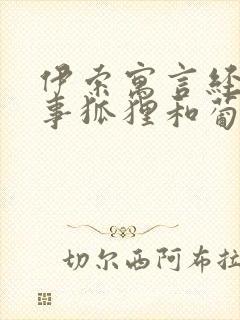 伊索寓言经
事狐狸和葡
切尔西阿布拉